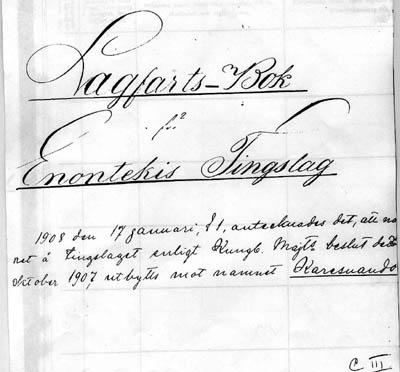 Lagfarts-Bok
för
Enontekis Tingslag
1908 den 17 januari, § 1, antecknades det, att na
net å Tingslaget enligt Kungl. Maj:ts beslut de
oktober 1907 utbytts mot namnet Karesuando
C III